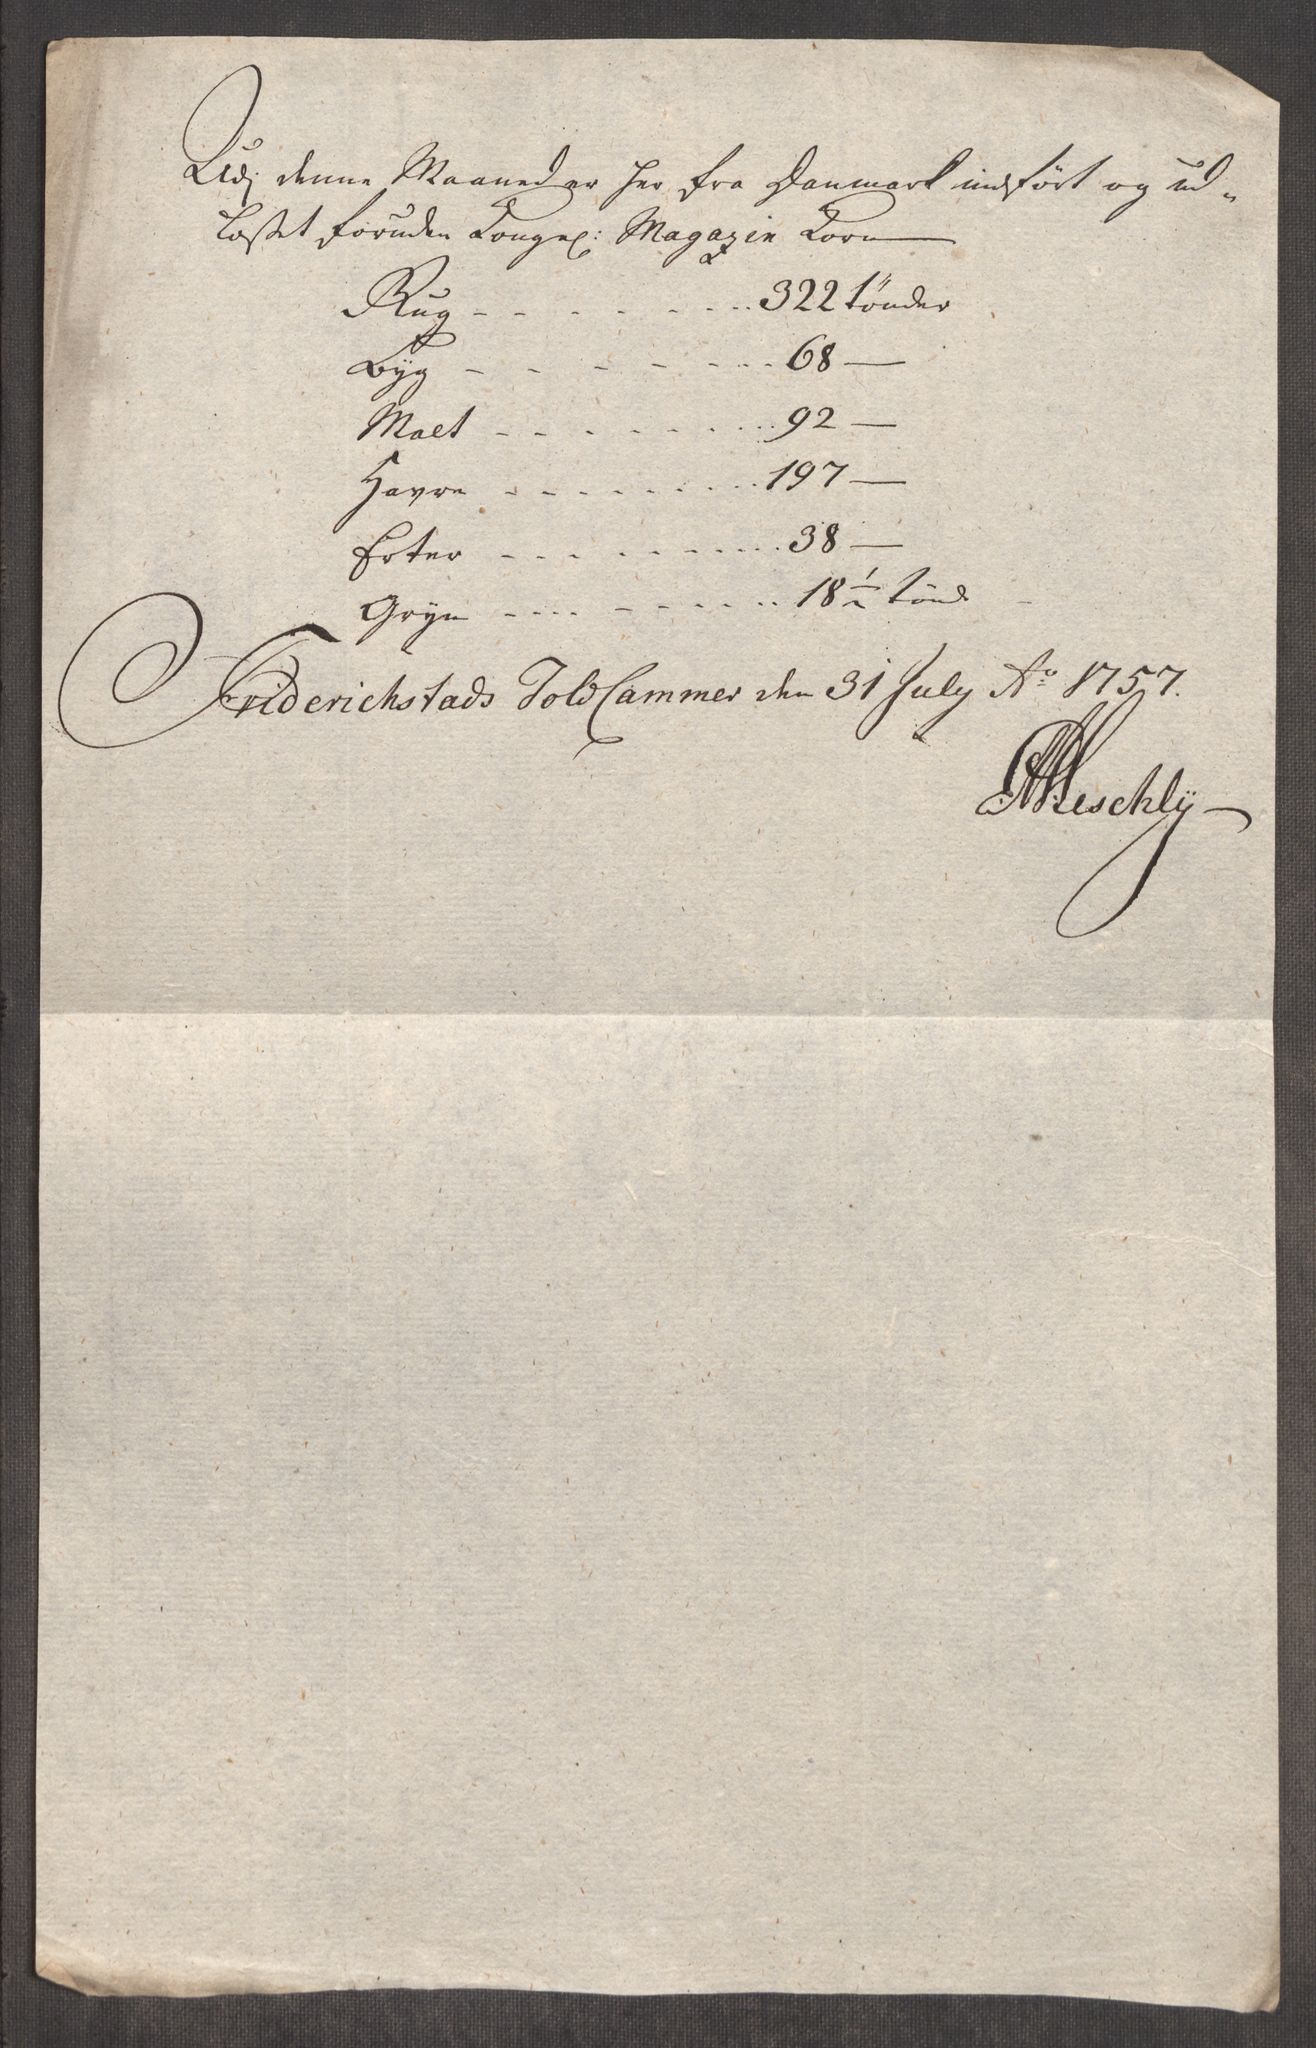 Udj denne Maaned er her fra Danmark indført og ud-
losset foruden Kongel: Magazin Korn
Rug - - - - - - - 322 tönder
Byg - - - - - - - 68 —
Malt - - - - - - - 92 —
Havre - - - - - - - 197 —
Erter - - - - - - - 38 —
Gryn - - - - - - - 18 1/2 tönd
Friderichstads Told Cammer den 31 July Ao 1757.